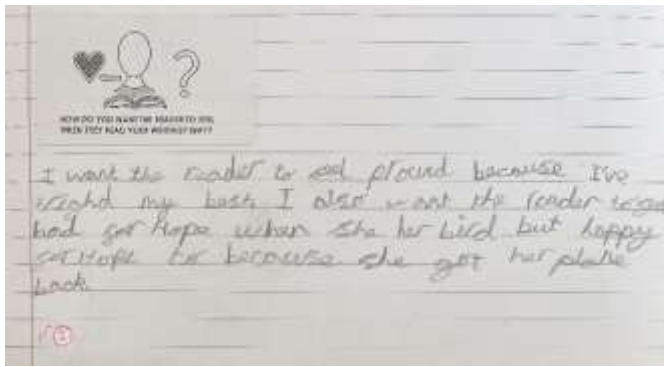 HOW DO YOU WANT THE READER TO FEEL
WHEN THEY READ YOUR WRITING? WHY?
I want the reader to eel plound because I've
trighd my best I also want the reader to
bad for Hope when she her bird but happy
for Hope to because she got her plane
back